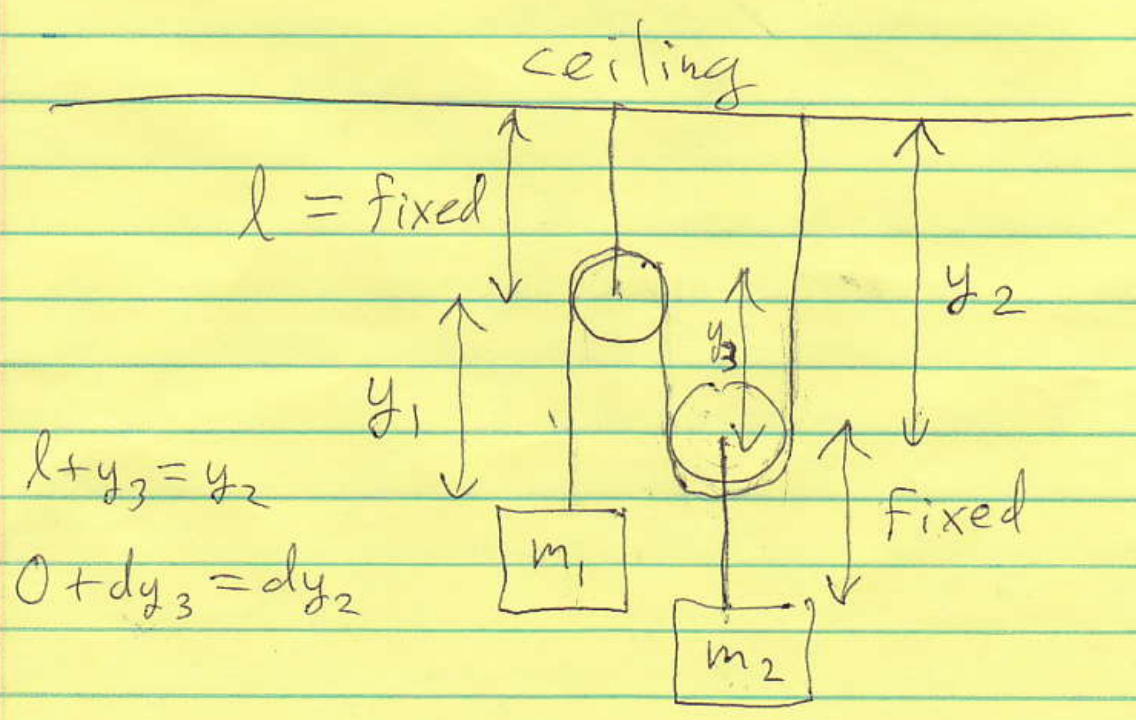 ceiling
l = fixed
y₂
y₃
y₁
l + y₃ = y₂
Fixed
m₁
0 + dy₃ = dy₂
m₂